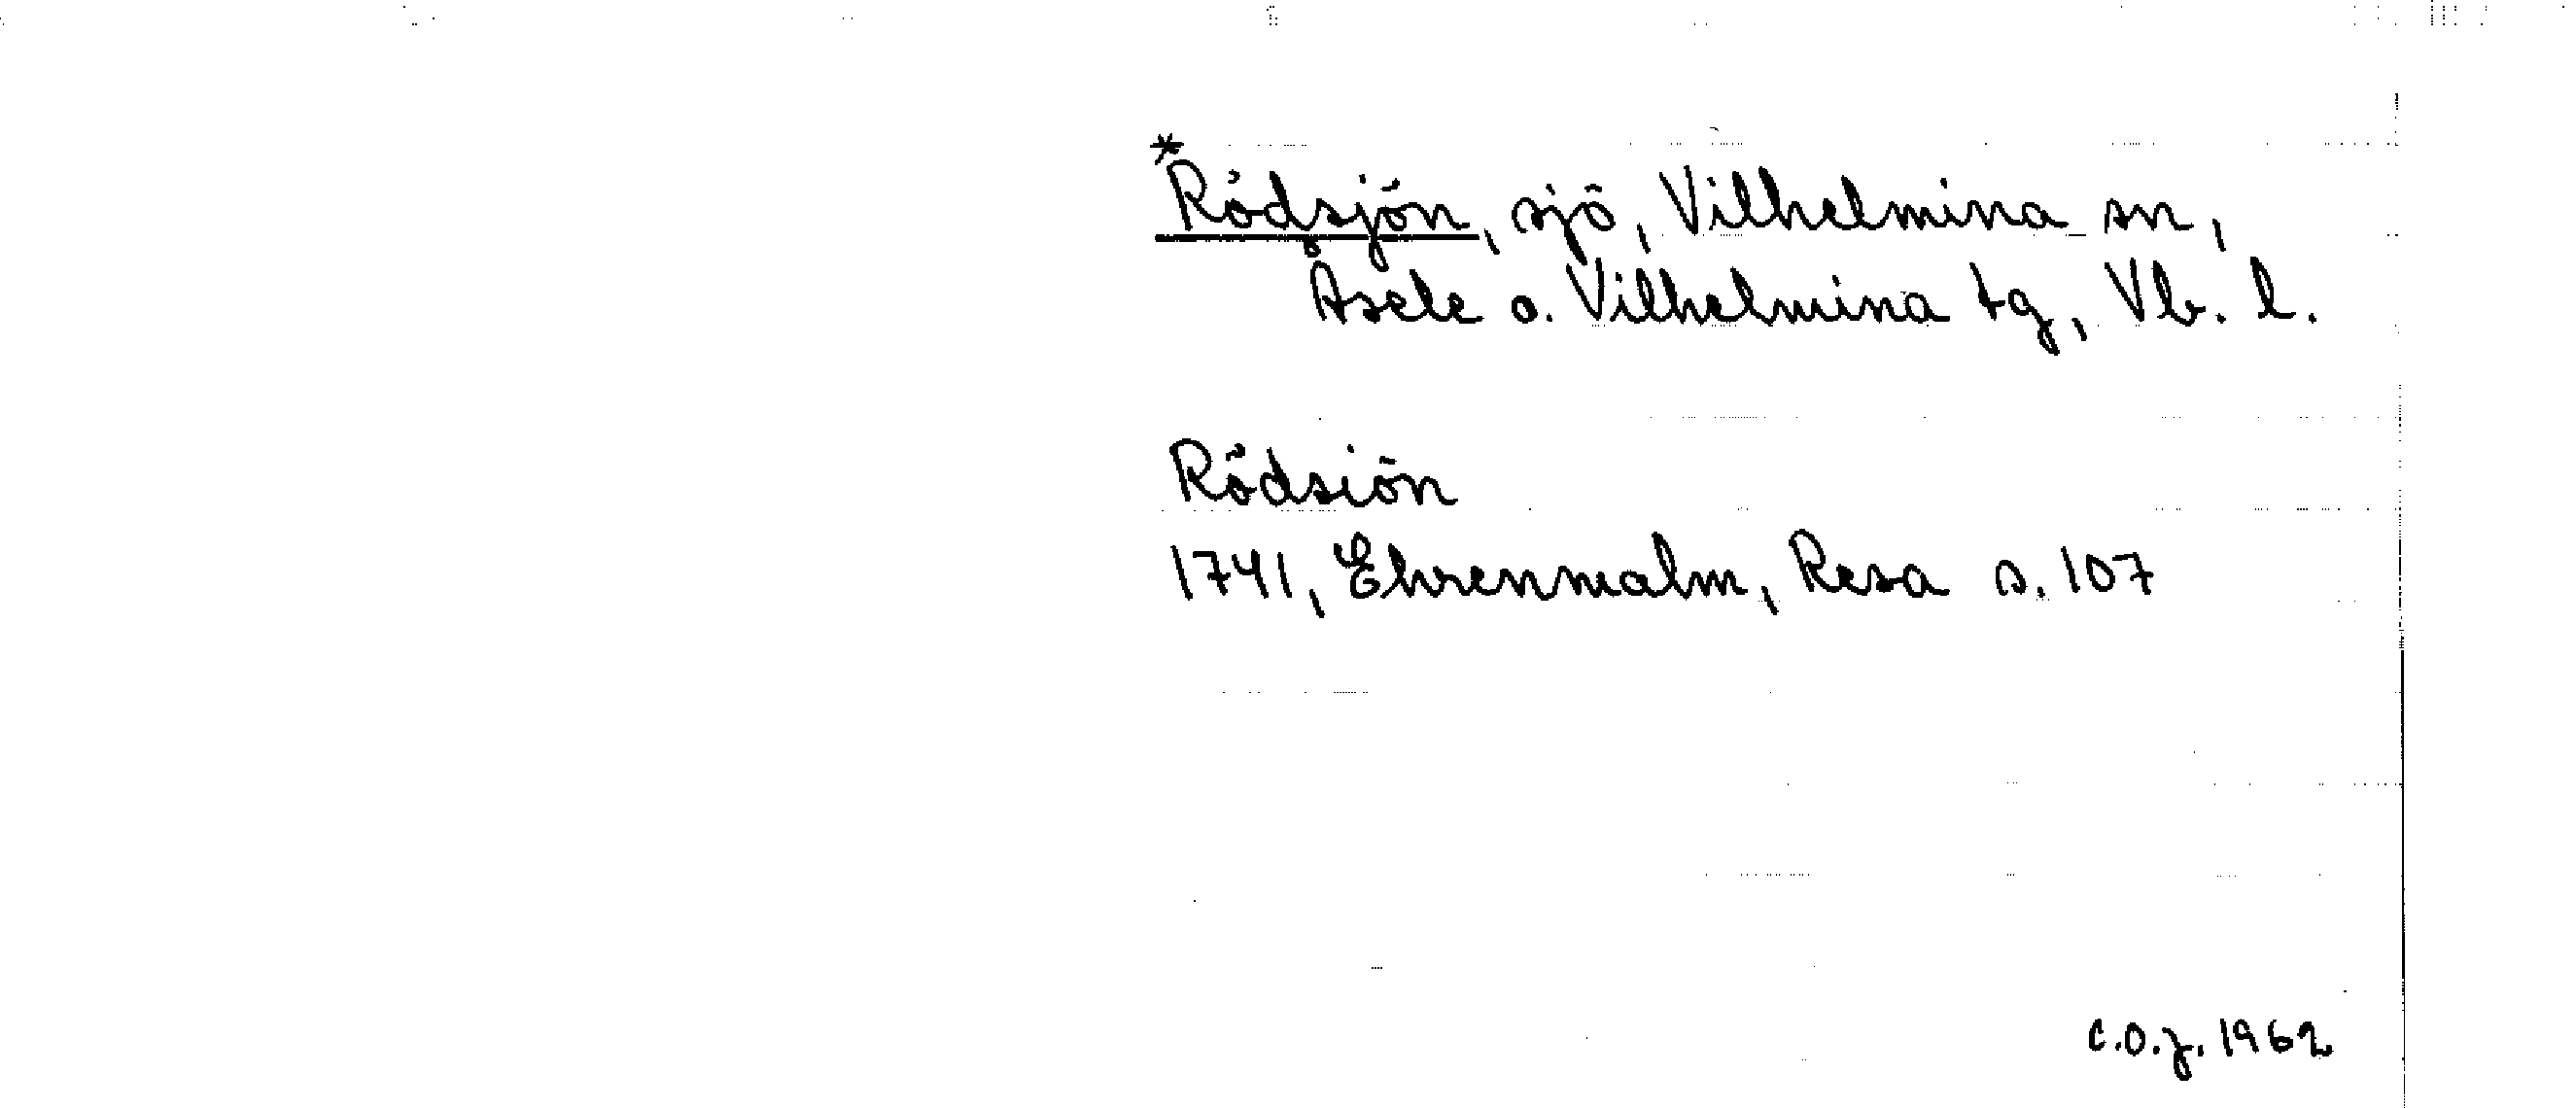 *Rödsjön, sjö, Vilhelmina sn,
Åsele o. Vilhelmina tg, Vb. l.
Rödsiön
1741, Ehrenmalm, Resa s. 107
C.O.J. 1962